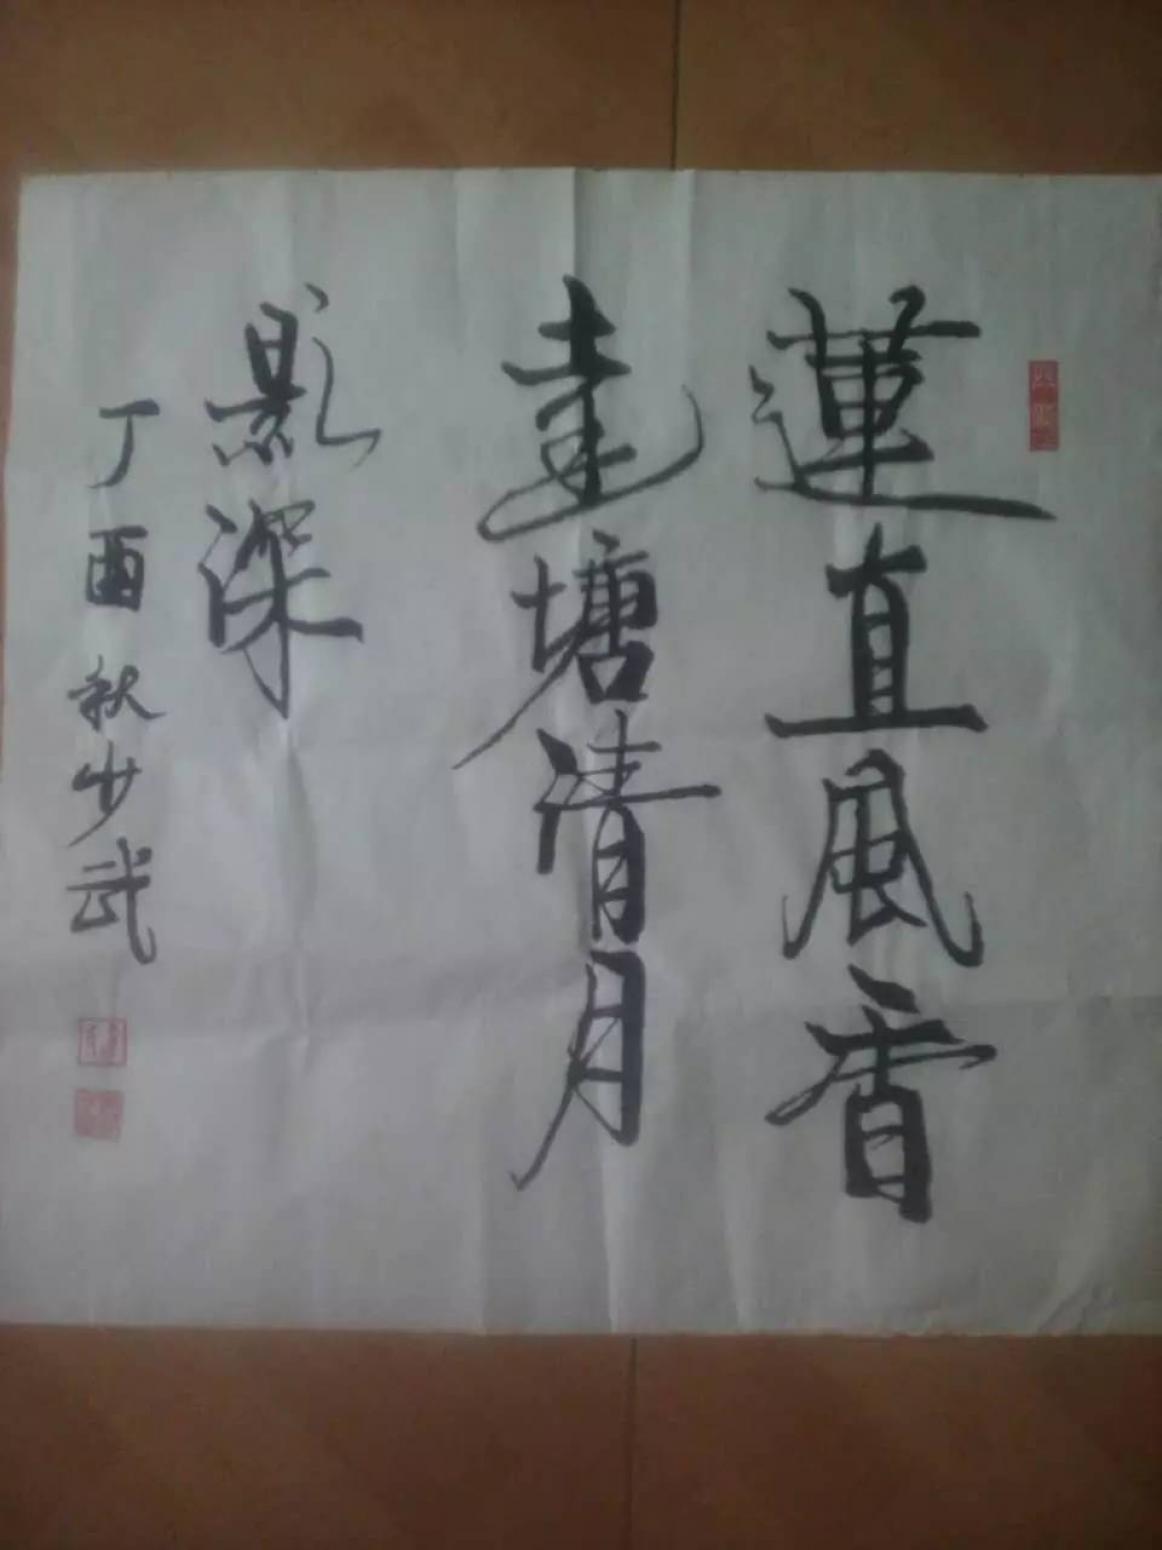 蓮直風香
達塘清月
影深
丁酉秋少武